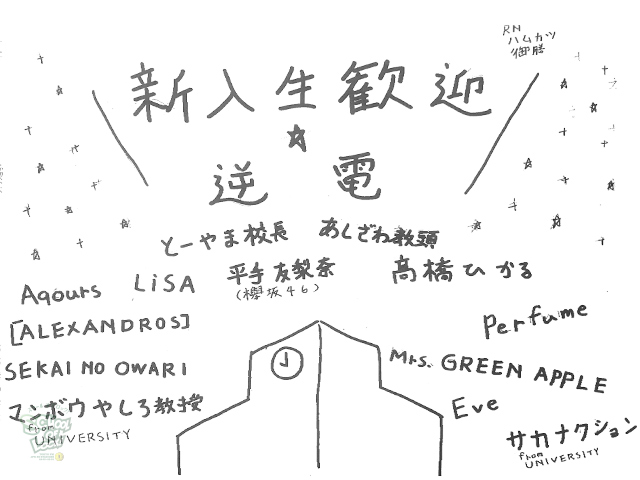 RN
ハムカツ
御膳
新入生歓迎
☆
逆電
とーやま校長 あしざわ教頭
Aqours LiSA 平手友梨奈 高橋ひかる
(欅坂46)
[ALEXANDROS] Perfume
SEKAI NO OWARI Mrs. GREEN APPLE
マンボウやしろ教授 Eve
from UNIVERSITY サカナクション
from UNIVERSITY